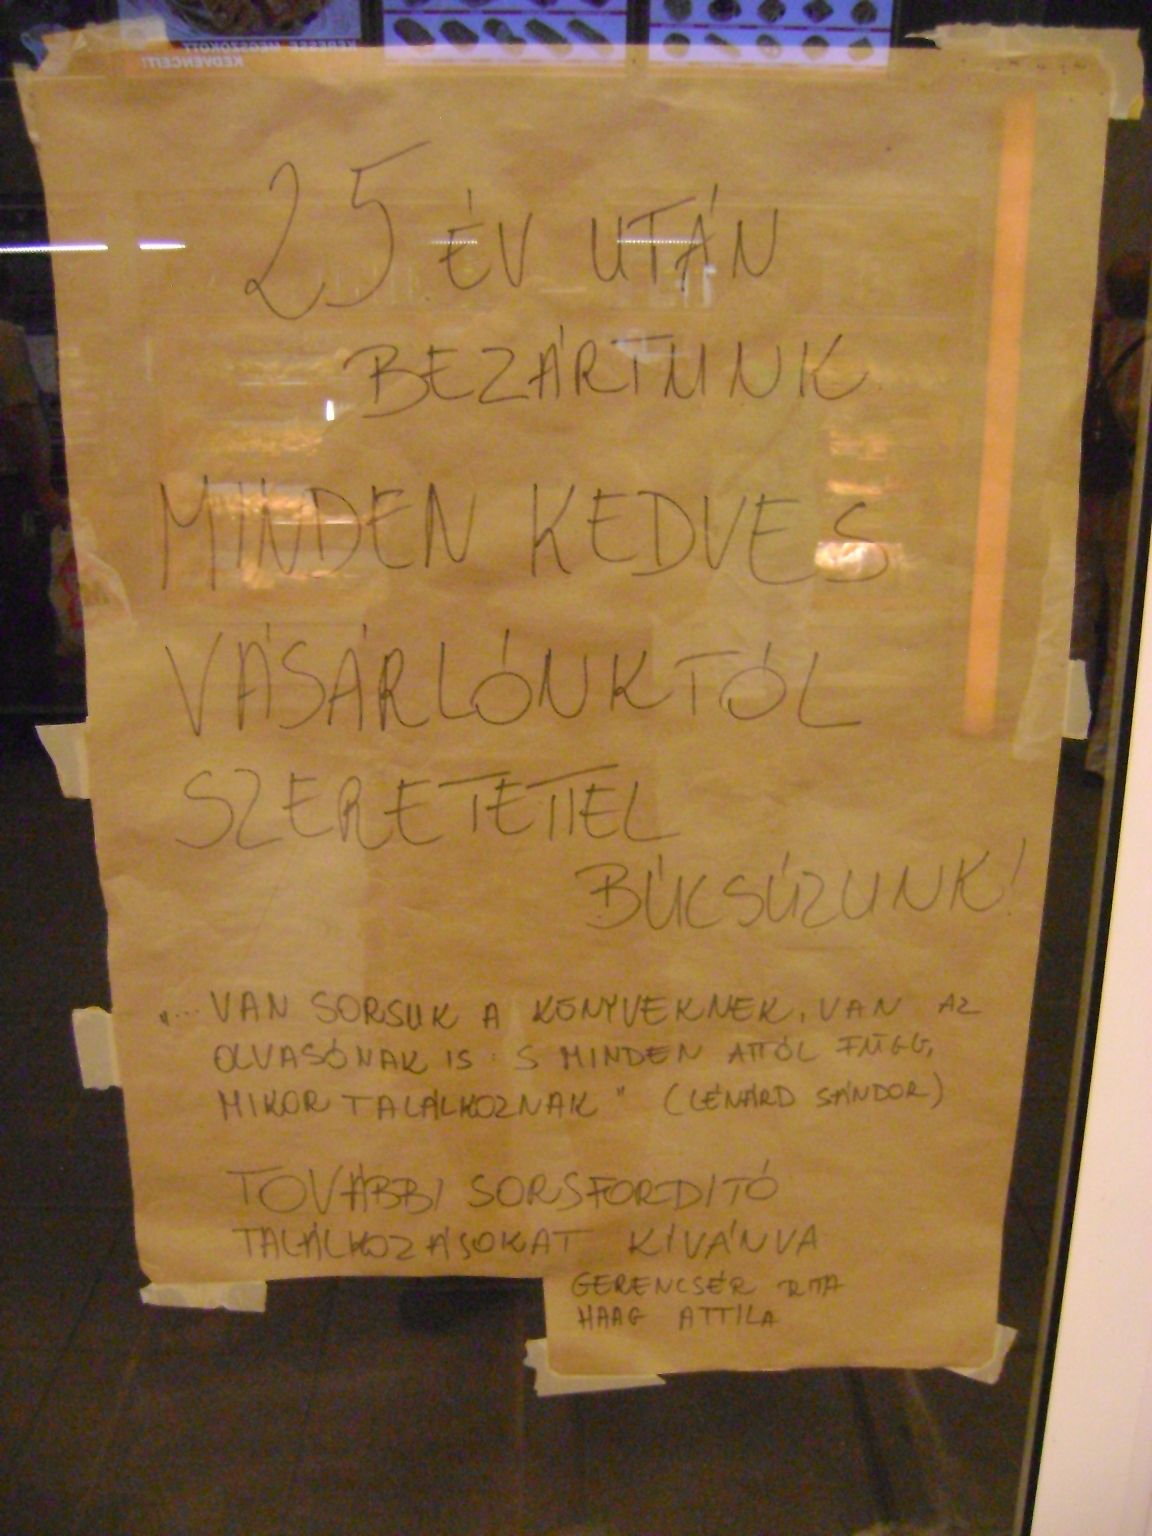 KERESSE MEGSZOKOTT
KEDVENCEIT!
25 ÉV UTÁN
BEZÁRTUNK
MINDEN KEDVES
VÁSÁRLÓNKTÓL
SZERETETTEL
BÚCSÚZUNK!
"... VAN SORSUK A KÖNYVEKNEK, VAN AZ
OLVASÓNAK IS. S MINDEN ATTÓL FÜGG,
MIKOR TALÁLKOZNAK" (LÉNÁRD SÁNDOR)
TOVÁBBI SORSFORDITÓ
TALÁLKOZÁSOKAT KÍVÁNVA
GERENCSÉR RITA
HAAG ATTILA